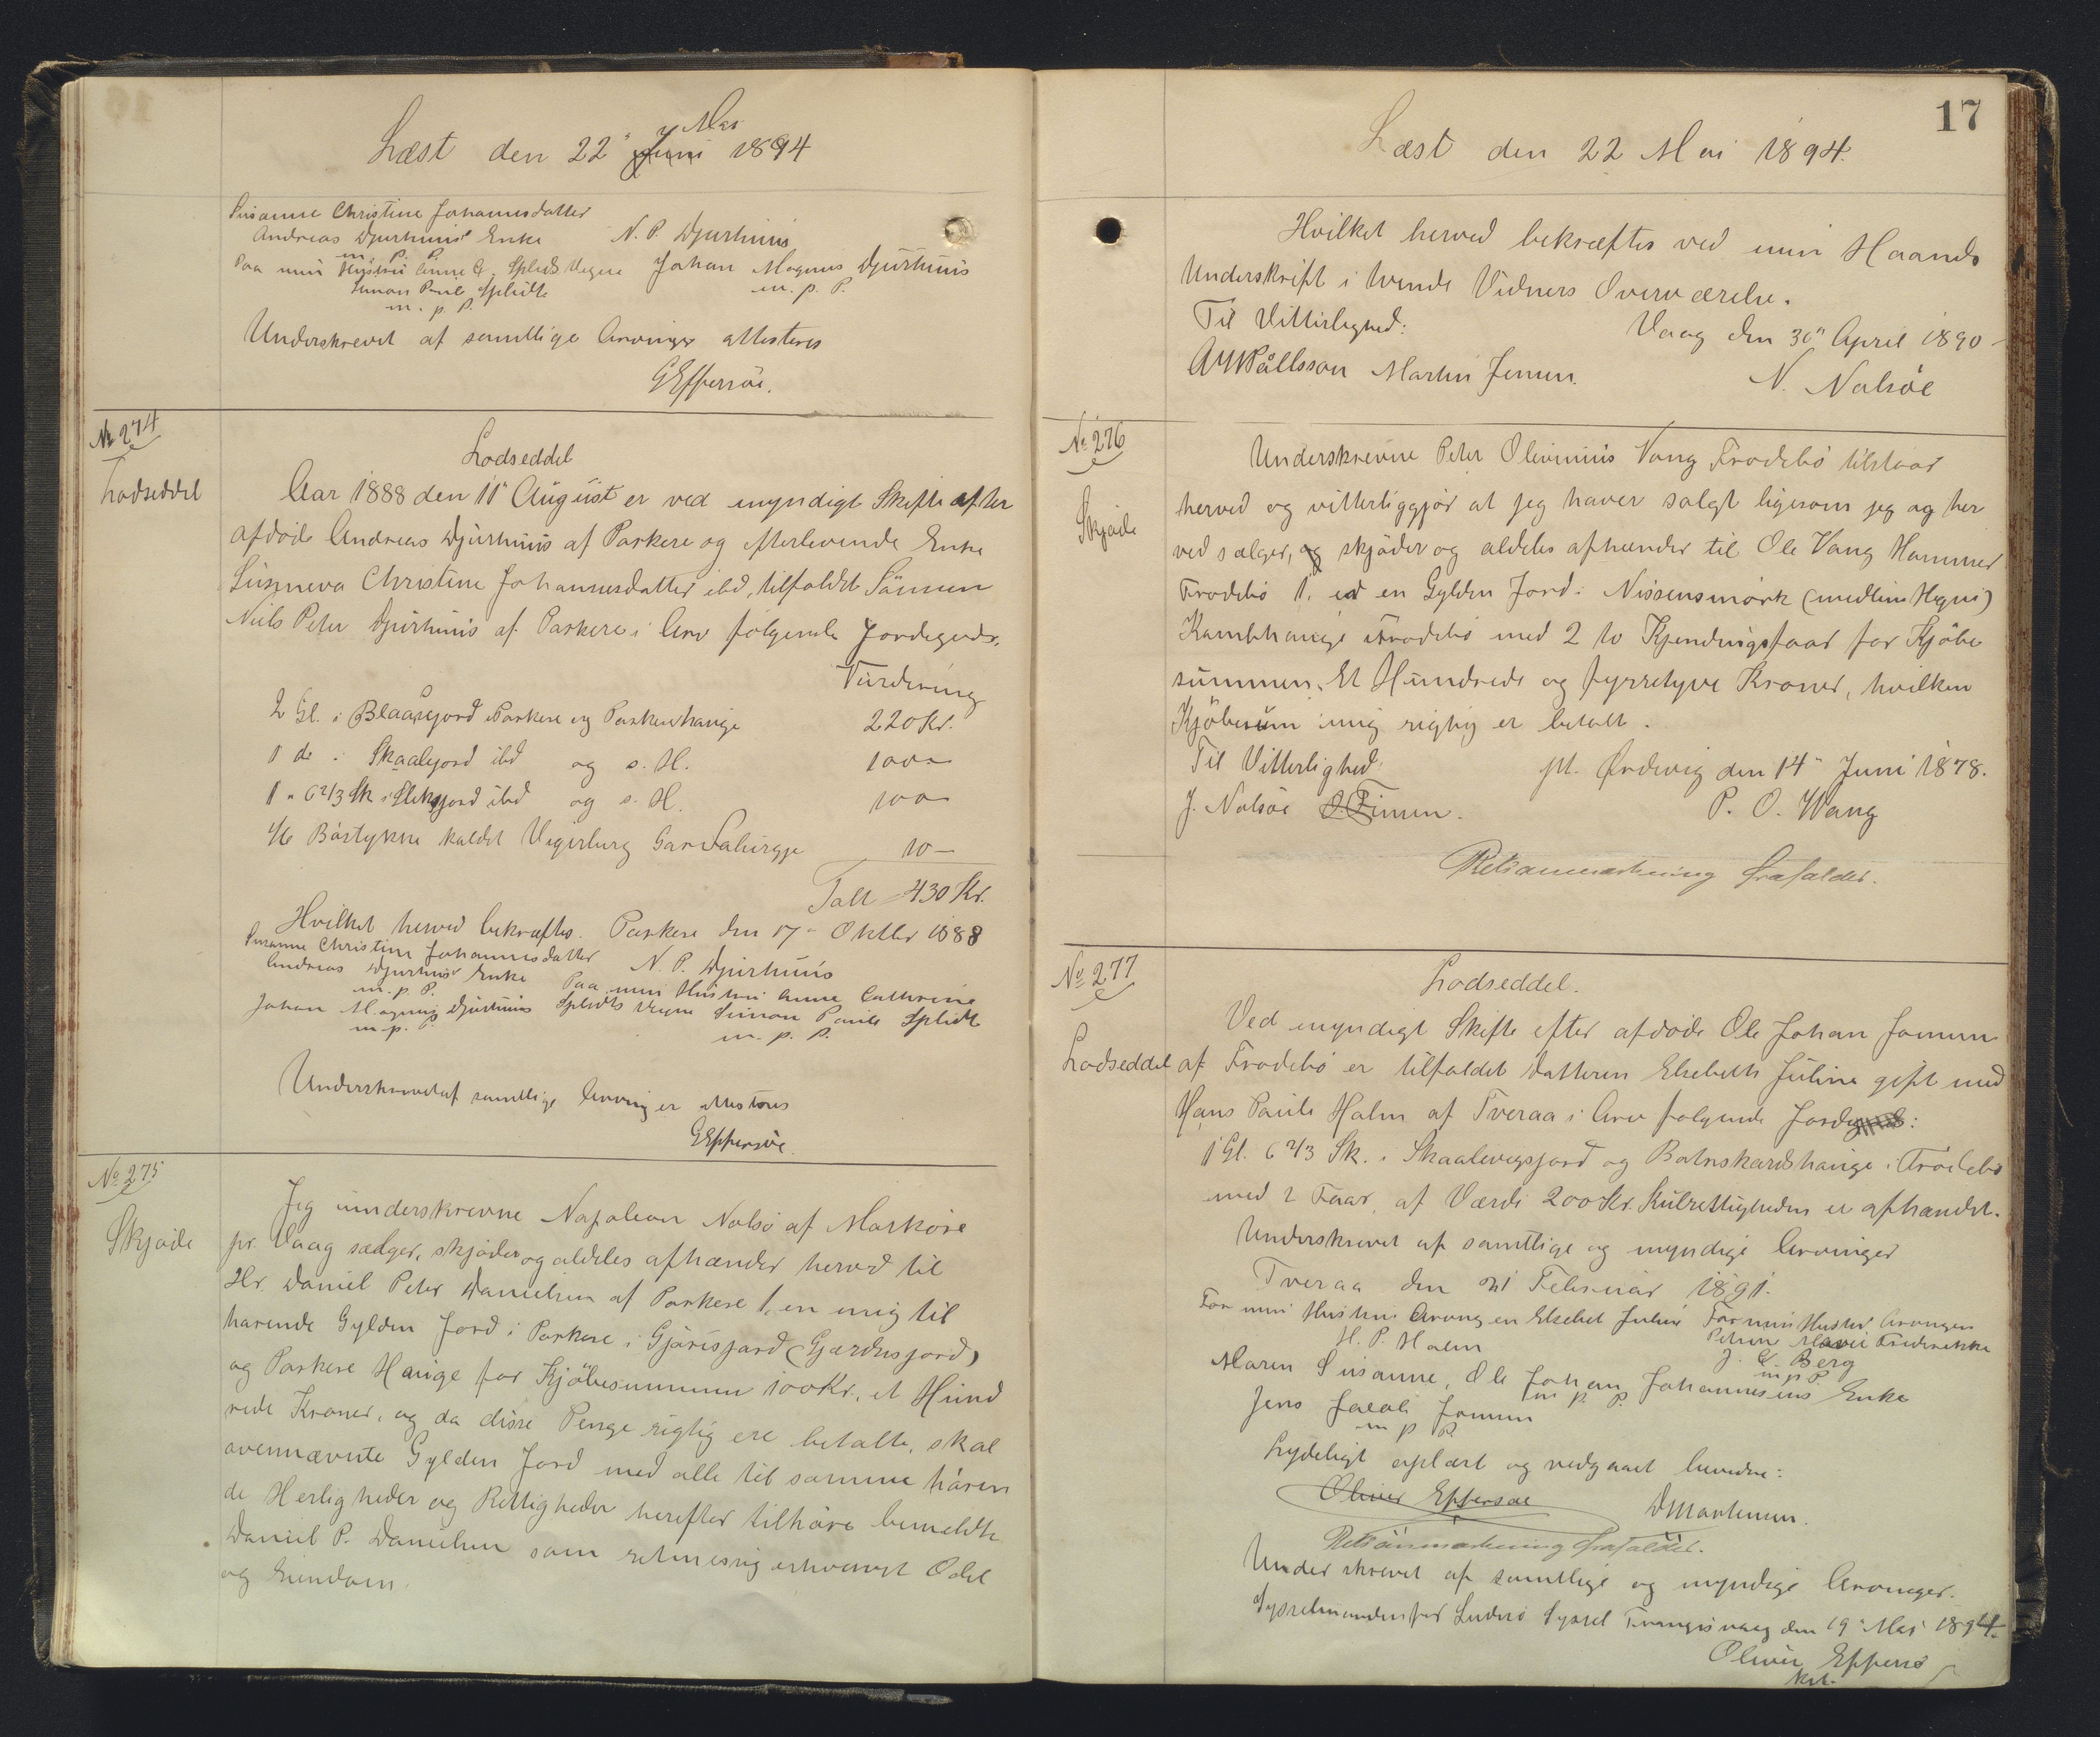 Læst den 22" Juni Mai 1894
Susanne Christine Johannesdatter
Andreas Djurhuus' Enke N. P. Djurhuus
m. p. P.
Paa min Hustru Anne C. Splids Vegne Johan Magnus Djurhuus
Simon Poul Splidt m. p. P.
m. p. P.
Underskrevet af samtlige Arvinger attesteres
GEffersøe.
No 274
Lodseddel
Lodseddel
Aar 1888 den 11" August er ved myndigt Skifte efter
afdöde Andreas Djurhuus af Porkere og efterlevende Enke
Susanna Christine Johannesdatter ibd, tilfaldet Sönnen
Niels Peter Djurhuus af Porkere i Arv følgende Jordegods.
Vurdering
2 Gl. i Blaasejord Porkere og Porkerehauge 220 Kr.
1 do i Skaalejord ibd og s. H. 100 —
1 " 6 2/3 Sk i ibd og s. H. 100 —
1/6 Böstykke kaldet 10 —
Talt 430 Kr.
Hvilket herved bekræftes. Porkere den 17 - Oktbr 1888
Susanne Christine Johannesdatter N. P. Djurhuus
Andreas Djurhuus' Enke Paa min Hustru Anne Cathrine
m. p. P.
Johan Magnus Djurhuus Splidts Vegne Simon Poule Splidt
m. p. P. m. p. P.
Underskrevet af samtlige Arvinger attesteres
GEffersøe.
No 275
Skjøde
Jeg underskrevne Napoleon Nolsö af Marköre
pr. Vaag sælger, skjöder og aldeles afhænder herved til
Hr. Daniel Peter Danielsen af Porkere 1, en mig til
hørende Gylden Jord i Porkere i Gjörisjord (Gjærdesjord)
og Porkere Hauge for Kjöbesummen 100 Kr., et Hund
rede Kroner, og da disse Penge rigtig ere betalte, skal
ovennævnte Gylden Jord med alle til samme hören
de Herligheder og Rettigheder herefter tilhöre bemeldte
Daniel P. Danielsen som retmessig erhvervet Odel
og Eiendom.
17
Læst den 22 Mai 1894.
Hvilket herved bekræftes ved min Haands
Underskrift i tvende Vidners Overværelse.
Til Vitterlighed: Vaag den 30" April 1890 -
Pállsson Martin Jensen. N. Nolsöe
No 276
Skjøde
Underskrevne Peter Oliverius Vang Frodebö tilstaar
herved og vitterliggjör at jeg haver solgt ligesom jeg og her
ved sælger, og skjöder og aldeles afhænder til Ole Vang Hammer
Frodebö 1, en Gylden Jord i Nissensmørk (medlem Hegni)
Kambhauge Frodebö med 2 to Kjendingsfaar for Kjöbe
summen, Et Hundrede og fyrretyve Kroner, hvilken
Kjöbesum mig rigtig er betalt.
Til Vitterlighed: pt. Ørdevig den 14" Juni 1878.
J. Nolsöe P. O. Wang
Retsanmærkning frafalder.
No 277
Lodseddel
Lodseddel.
Ved myndigt Skifte efter afdöde Ole Johan Joensen
af Frodebö er tilfaldet Datteren Elsebeth Juline gift med
Hans Paule Holm af Tveraa i Arv følgende Jordegods:
1 Gl. 6 2/3 Sk. i Skaalevigsjord og Botnskardshauge i Frodebö
med 2 Faar, af Værdi 200 Kr. Kulrettigheden er afhændet.
Underskrevet af samtlige og myndige Arvinger
Tveraa den 21 Februar 1891.
For min Hustru Arvingen Elsebet Juline For min Hustru Arvingen
H. P. Holm Petrine Marie Frederikke
J. C. Berg
m p P
Maren Susanne, Ole Johan Johannesens Enke
m p. P.
Jens Jacob Joensen
m p P.
Lydeligt oplæst og vedgaaet bevidne:
Oliver Effersøe DMortensen.
Retsanmærkning frafalder.
Underskrevet af samtlige og myndige Arvinger.
Sysselmanden for Suderö Syssel Trangisvaag den 19" Mai 1894.
Oliver Effersø
kst.